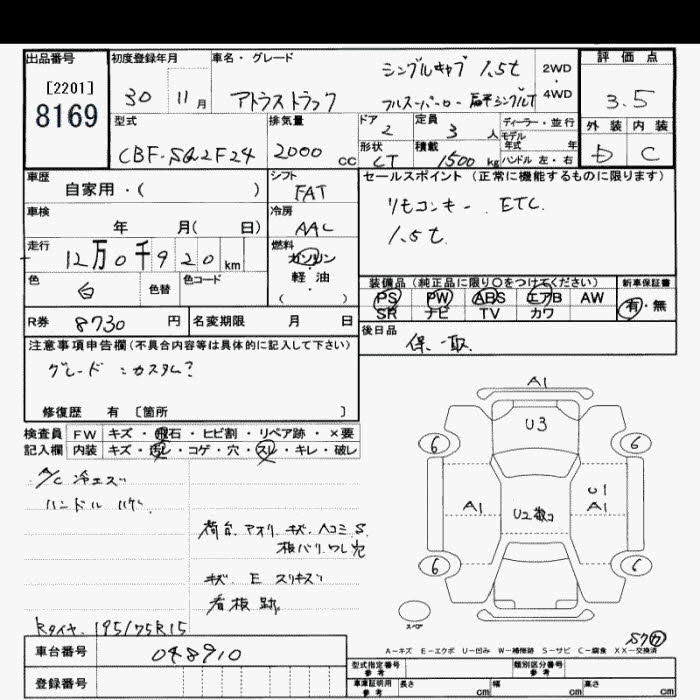 出品番号 初度登録年月 車名・グレード 評価点
[2201] シングルキャブ 1.5t 2WD
・
8169 30 11月 アトラストラック フルスーパーロー 4WD 3.5
型式 排気量 ドア 定員 ディーラー・並行 外装 内装
2 3人 モデル年式 年
CBF-SQ2F24 2000cc 形状 積載 ハンドル 左・右 D C
LT 1500kg
車歴 シフト セールスポイント (正常に機能するものに限ります)
自家用・( ) FAT リモコンキー. ETC.
車検 冷房 1.5t
年 月( 日) AAC
走行 燃料
12万0千920km ガソリン
・
色 白 色替 色コード 軽・油
( )
装備品 (純正品に限り○をつけてください) 新車保証書
PS PW ABS エアB AW 有・無
SR ナビ TV カワ
R券 8730円 名変期限 月 日 後日品
保・取.
注意事項申告欄(不具合内容等は具体的に記入して下さい)
グレード:カスタム?
修復歴 有 [箇所 ]
検査員 FW キズ・飛石・ヒビ割・リペア跡・×要
記入欄 内装 キズ・汚レ・コゲ・穴・スレ・キレ・破レ
A/C 冷エズ
ハンドル ハゲ.
荷台. アオリ キズ. ヘコミ. S.
板バリ. ワレ 穴
キズ E スリキズ
看板跡.
Rタイヤ. 195/75R15
A1
U3
6 6
A1 U1
A1
6 6
スペア
A-キズ E-エクボ U-凹み W-補修跡 S-サビ C-腐食 XX-交換済
車台番号 048910
登録番号
型式指定番号 参考 類別区分番号 参考
車庫証明用 参考 長さ cm 幅 cm 高さ cm